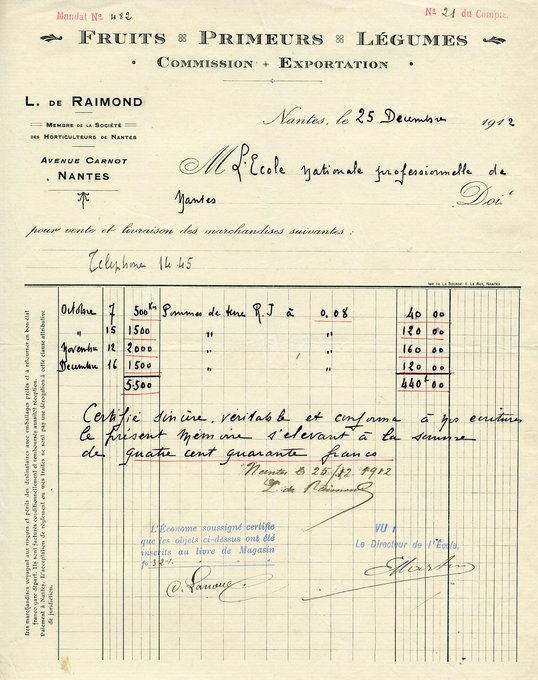 Mandat No. 482
No. 21 du Compte.
FRUITS PRIMEURS LÉGUMES
COMMISSION + EXPORTATION
L. DE RAIMOND
MEMBRE DE LA SOCIÉTÉ
DES HORTICULTEURS DE NANTES
AVENUE CARNOT
NANTES
Nantes, le 25 Decembre 1912
M L'Ecole nationale professionnelle de
Nantes Doit
pour vente et livraison des marchandises suivantes :
Telephone 14.45
IMP. DE LA BOURSE. E. LE ROY, NANTES
Octobre 7 500 Ks Pommes de terre R. J à 0,08 40 00
" 15 1500 " " 120 00
Novembre 12 2000 " " 160 00
Decembre 16 1500 " " 120 00
5.500 440 f 00
Certifié sincère, véritable et conforme à nos écritures
le présent Mémoire s'elevant à la somme
de quatre cent quarante francs
Nantes le 25/12 1912
L. de Raimond
L'Économe soussigné certifie
que les objets ci-dessus ont été
inscrits au livre de Magasin
fo 321.
VU :
Le Directeur de l'École,
Les marchandises voyagent aux risques et périls des destinataires avec emballages prêtés et à retourner en bon état
franco gare départ. Ils sont facturés conditionnellement et remboursés aussitôt réception.
Paiement à Nantes. L'acceptation de règlement ou mes traites ne sont pas une dérogation à cette clause attributive
de juridiction.